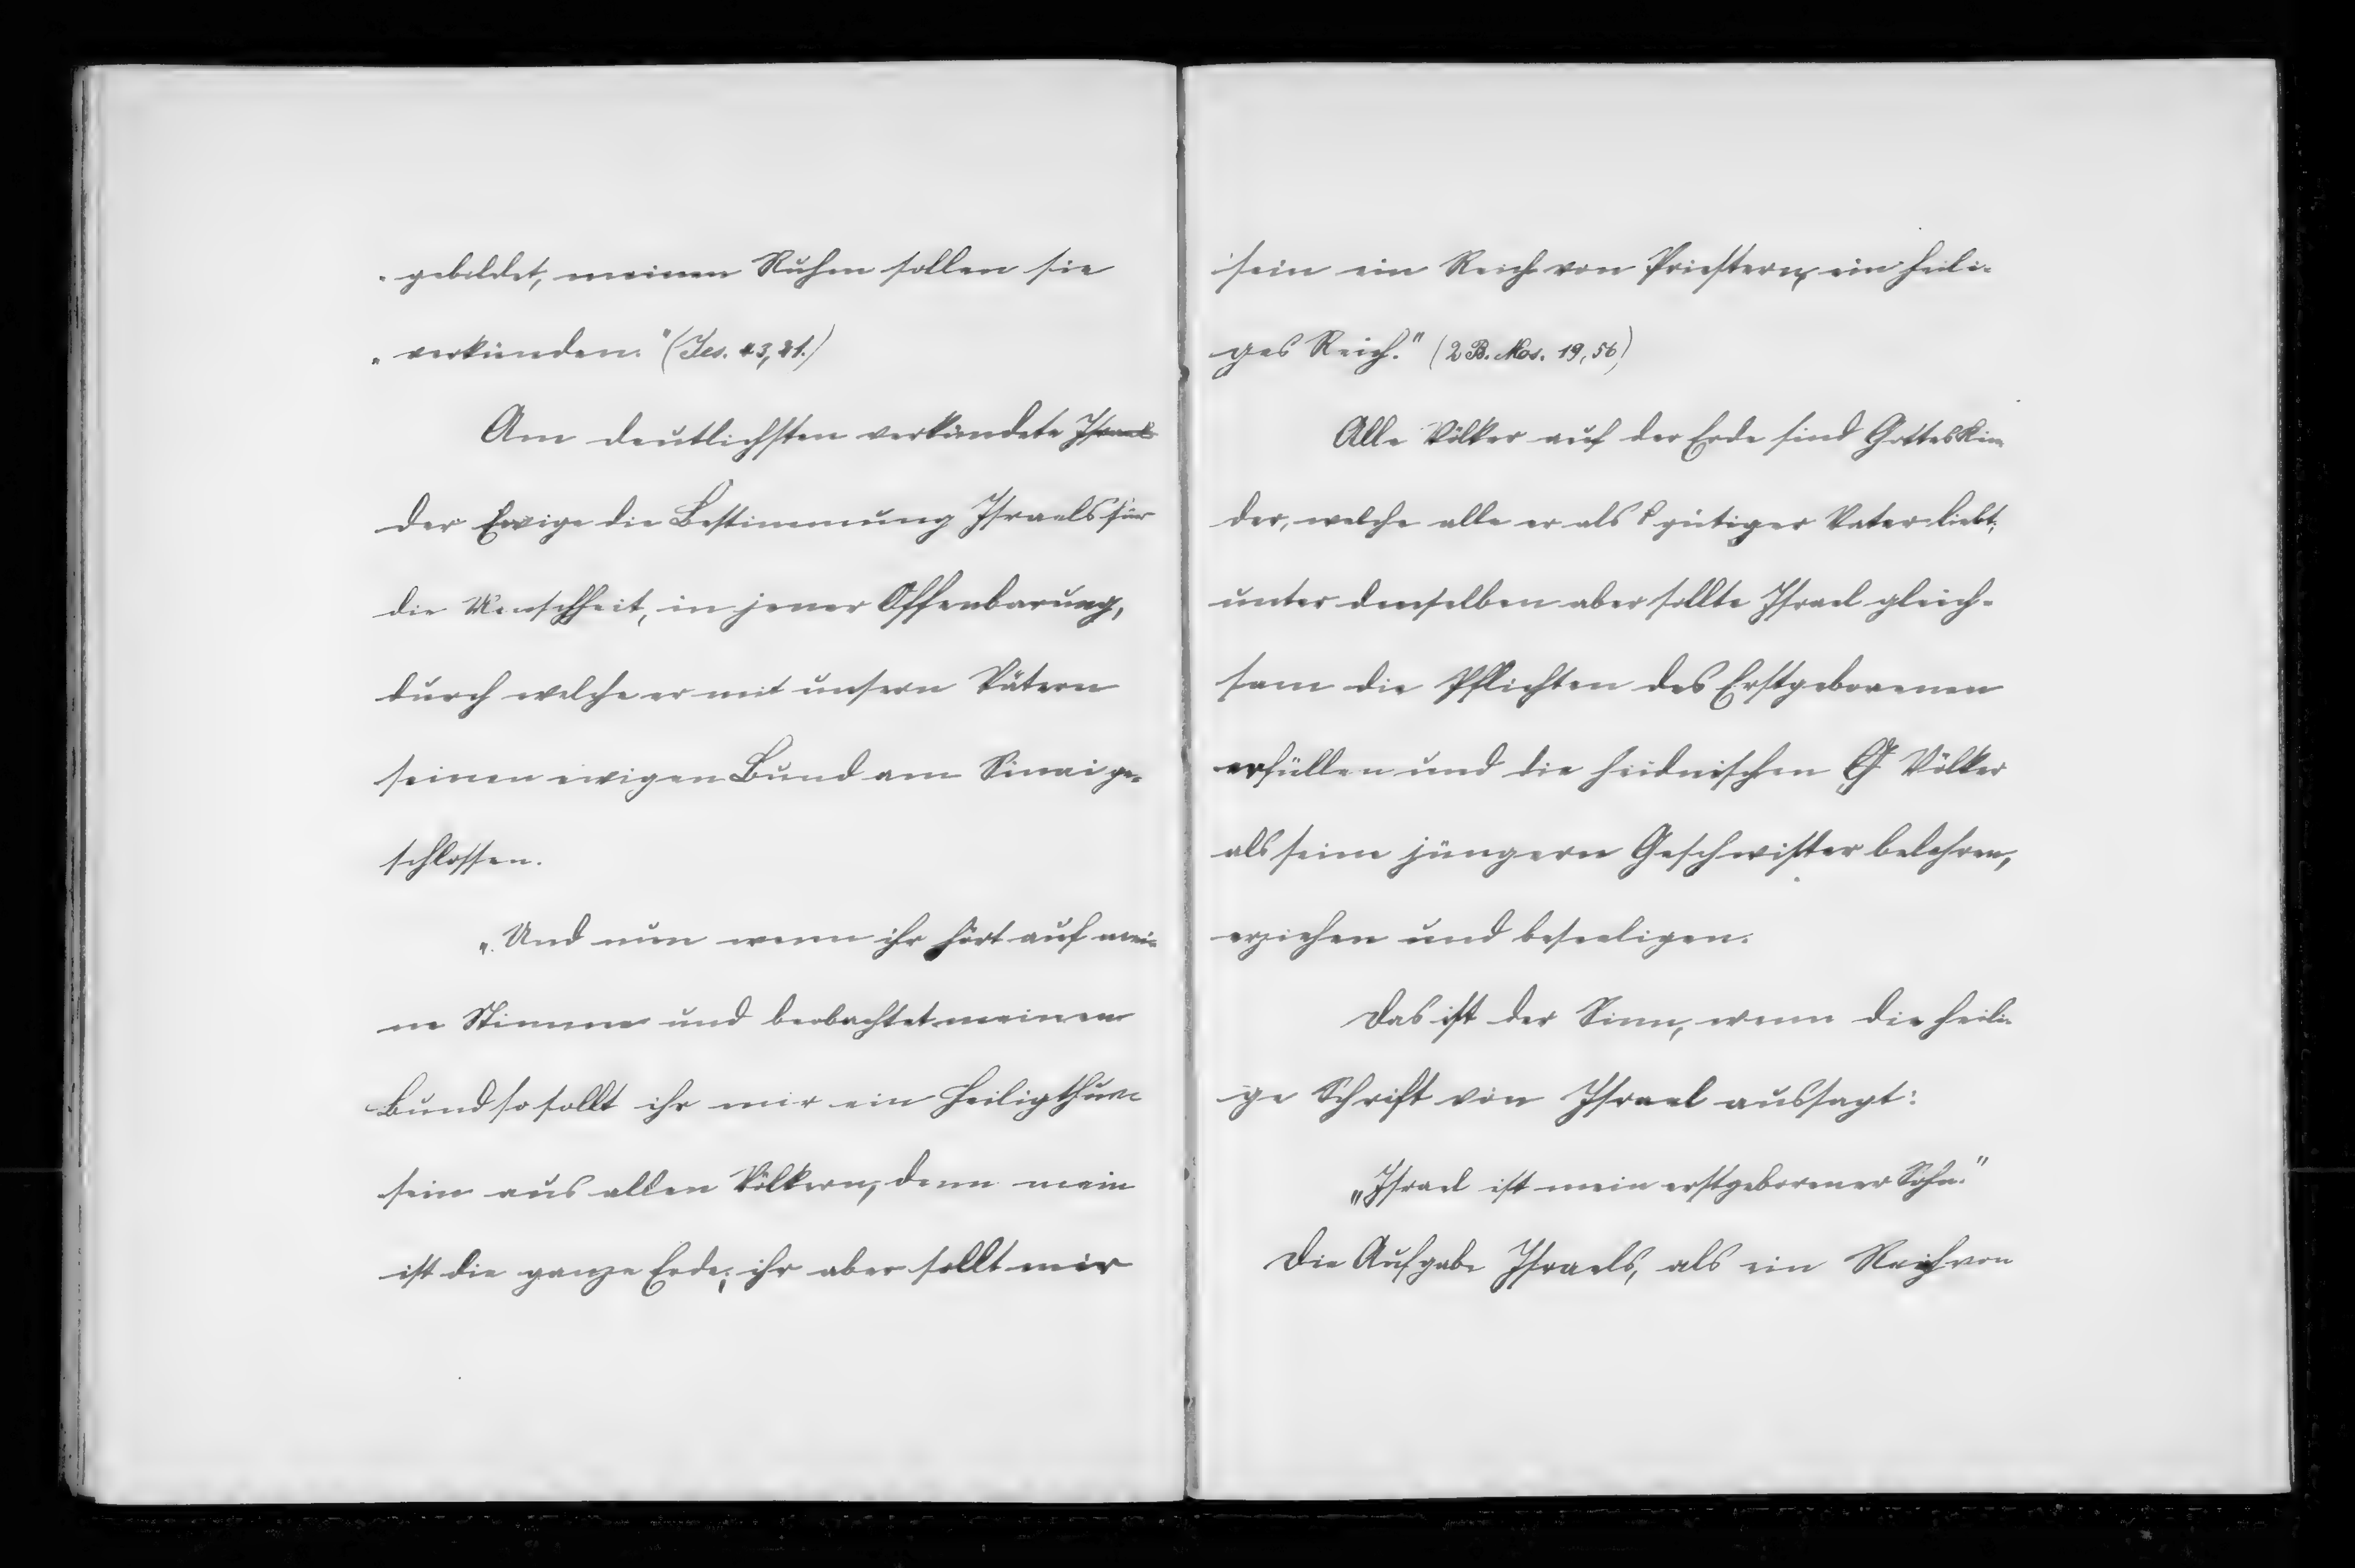 „gebildet, meinen Ruhm sollen sie
„verkünden." (Jes. 43, 21.)
Am deutlichsten verkündete Israel
der Ewige die Bestimmung Israels für
die Menschheit, in jener Offenbarung,
durch welche er mit unsern Vätern
seinen ewigen Bund am Sinai ge-
schlossen.
„Und nun wenn ihr hört auf mei-
ne Stimme und beobachtet meinen
Bund so sollt ihr mir ein Heiligthum
sein aus allen Völkern, denn mein
ist die ganze Erde; ihr aber sollt mir
sein ein Reich von Priestern, ein heili-
ges Reich." (2 B. Mos. 19, 56)
Alle Völker auf der Erde sind Gotteskin-
der, welche alle er als gütiger Vater liebt;
unter denselben aber sollte Israel gleich-
sam die Pflichten des Erstgeborenen
erfüllen und die heidnischen G Völker
als seine jüngern Geschwister belehren,
erziehen und beseeligen.
Das ist der Sinn, wenn die heili-
ge Schrift von Israel aussagt:
„Israel ist mein erstgeborener Sohn."
Die Aufgabe Israels, als ein Reich von